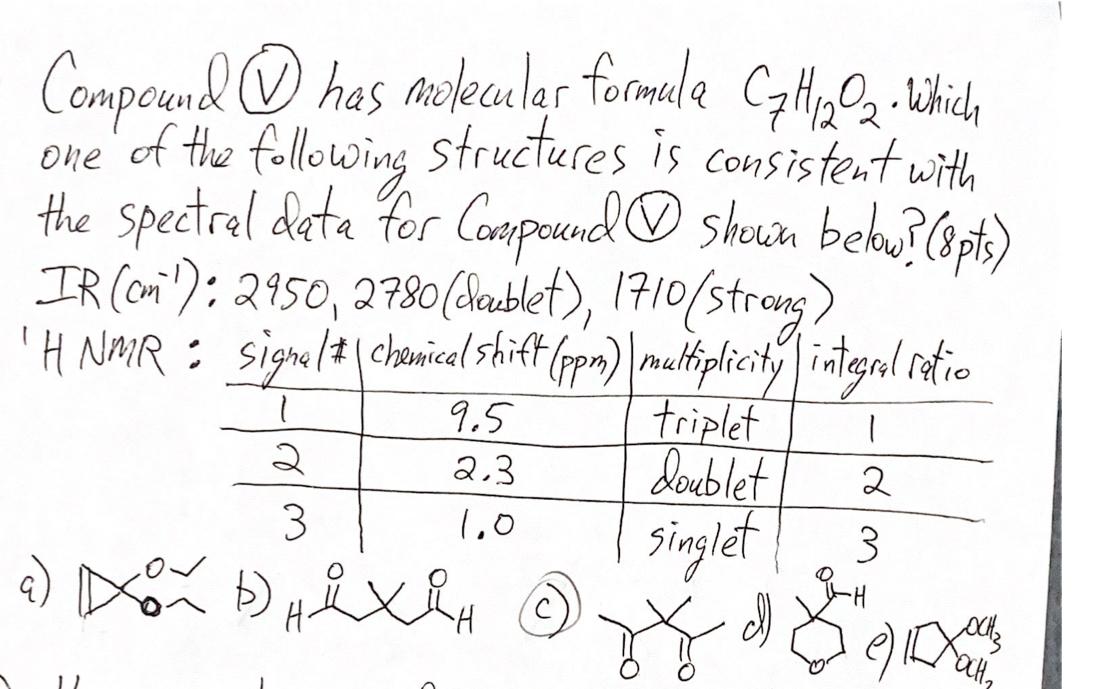 Compound Ⓥ has molecular formula C₇H₁₂O₂. Which
one of the following structures is consistent with
the spectral data for Compound Ⓥ shown below? (8pts)
IR (cm⁻¹): 2950, 2780 (doublet), 1710 (strong)
¹H NMR: signal # | chemical shift (ppm) | multiplicity | integral ratio
1 | 9.5 | triplet | 1
2 | 2.3 | doublet | 2
3 | 1.0 | singlet | 3
a) O O b) H O O H c) O O d) O H O e) OCH₃ OCH₃